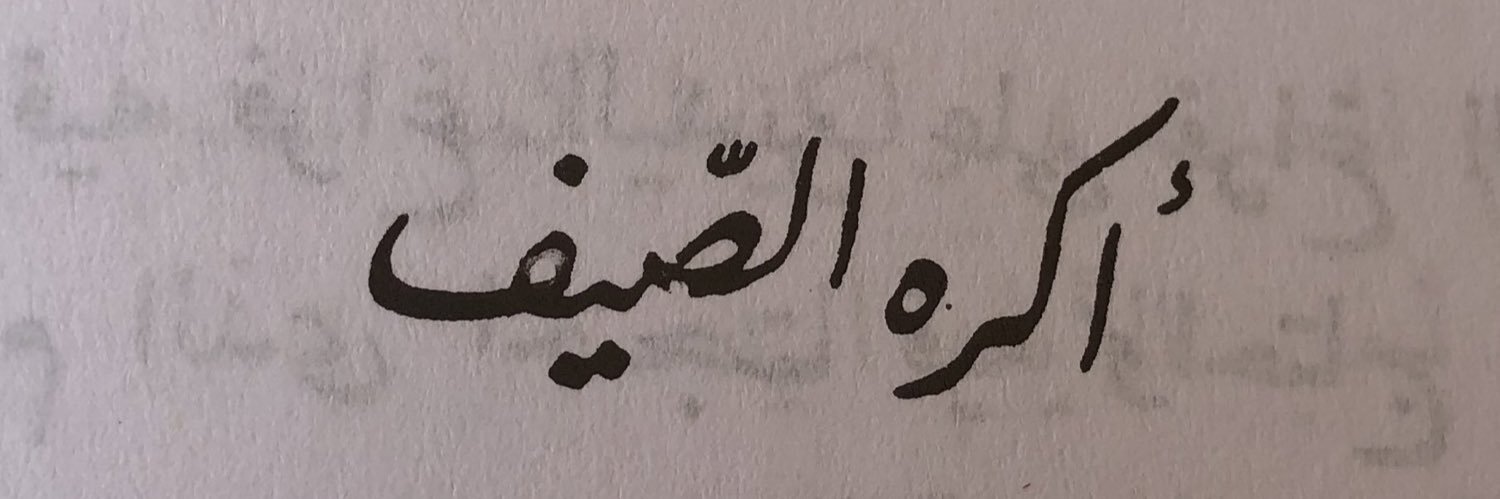 أكره الصّيف